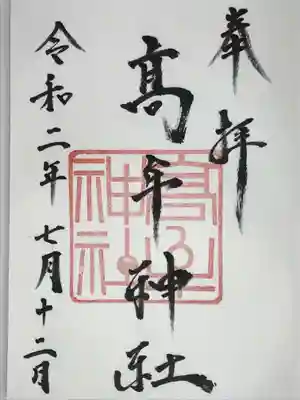 奉拝
髙牟神社
高牟神社
令和二年七月十二日